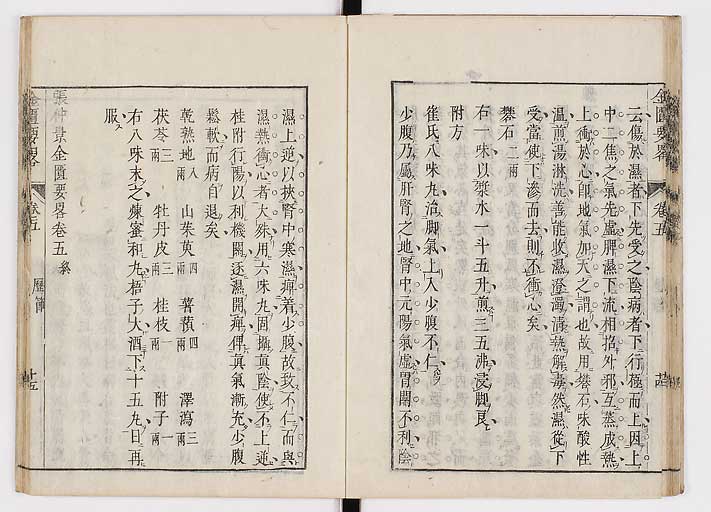 金匱要略 卷五
云傷於濕者下先受之陰病者下行極而上因上
中二焦之氣先虛脾濕下流相招外邪互蒸成熱
上衝於心卽地氣加天之謂也故用礬石味酸性
溫煎湯淋洗善能收濕澄濁清熱解毒然濕從下
受當使下滲而去則不衝心矣
礬石二兩
右一味以漿水一斗五升煎三五沸浸脚良
附方
崔氏八味丸治脚氣上入少腹不仁
少腹乃屬肝腎之地腎中元陽氣虛胃關不利陰
濕上逆以挾腎中寒濕痺着少腹故致不仁而與
濕熱衝心者大殊用六味丸固攝眞陰使不上逆
桂附行陽以利機關逐濕開痺俾眞氣漸充少腹
鬆軟而病自退矣
乾熟地八兩 山茱萸四兩 薯蕷四兩 澤瀉三兩
茯苓三兩 牡丹皮三兩 桂枝一兩 附子一兩
右八味末之煉蜜和丸梧子大酒下十五丸日再
服
張仲景金匱要略卷五終
金匱要略 卷五 歷節